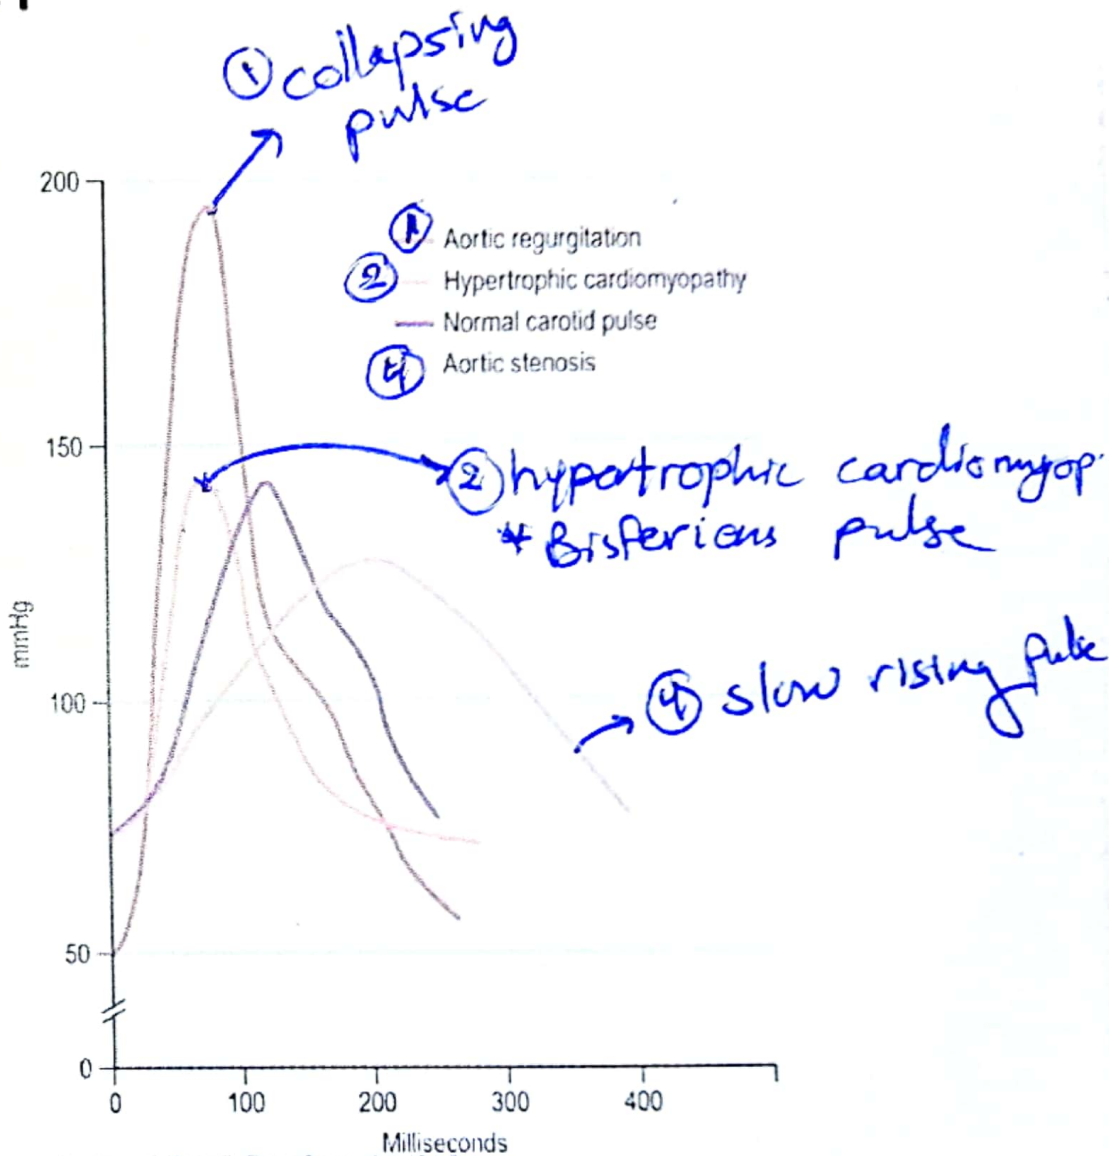 ① collapsing
pulse
200
① Aortic regurgitation
② Hypertrophic cardiomyopathy
Normal carotid pulse
④ Aortic stenosis
150
② hypertrophic cardiomyop.
* Bisferious pulse
mmHg
④ slow rising pulse
100
50
0
0 100 200 300 400
Milliseconds